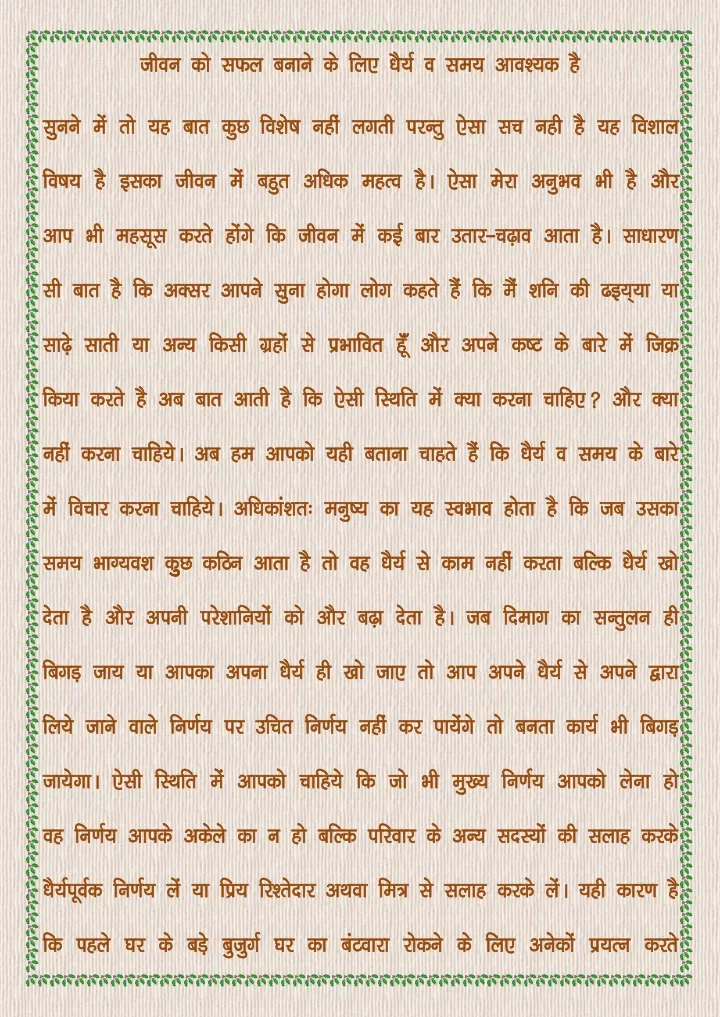 जीवन को सफल बनाने के लिए धैर्य व समय आवश्यक है
सुनने में तो यह बात कुछ विशेष नहीं लगती परन्तु ऐसा सच नही है यह विशाल
विषय है इसका जीवन में बहुत अधिक महत्व है। ऐसा मेरा अनुभव भी है और
आप भी महसूस करते होंगे कि जीवन में कई बार उतार-चढ़ाव आता है। साधारण
सी बात है कि अक्सर आपने सुना होगा लोग कहते हैं कि मैं शनि की ढइय्या या
साढ़े साती या अन्य किसी ग्रहों से प्रभावित हूँ और अपने कष्ट के बारे में जिक्र
किया करते है अब बात आती है कि ऐसी स्थिति में क्या करना चाहिए? और क्या
नहीं करना चाहिये। अब हम आपको यही बताना चाहते हैं कि धैर्य व समय के बारे
में विचार करना चाहिये। अधिकांशतः मनुष्य का यह स्वभाव होता है कि जब उसका
समय भाग्यवश कुछ कठिन आता है तो वह धैर्य से काम नहीं करता बल्कि धैर्य खो
देता है और अपनी परेशानियों को और बढ़ा देता है। जब दिमाग का सन्तुलन ही
बिगड़ जाय या आपका अपना धैर्य ही खो जाए तो आप अपने धैर्य से अपने द्वारा
लिये जाने वाले निर्णय पर उचित निर्णय नहीं कर पायेंगे तो बनता कार्य भी बिगड़
जायेगा। ऐसी स्थिति में आपको चाहिये कि जो भी मुख्य निर्णय आपको लेना हो
वह निर्णय आपके अकेले का न हो बल्कि परिवार के अन्य सदस्यों की सलाह करके
धैर्यपूर्वक निर्णय लें या प्रिय रिश्तेदार अथवा मित्र से सलाह करके लें। यही कारण है
कि पहले घर के बड़े बुजुर्ग घर का बंटवारा रोकने के लिए अनेकों प्रयत्न करते